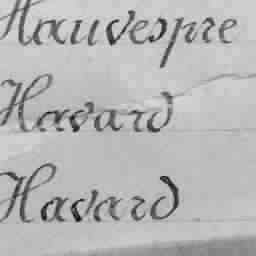 Hauvespre
Havard
Havard